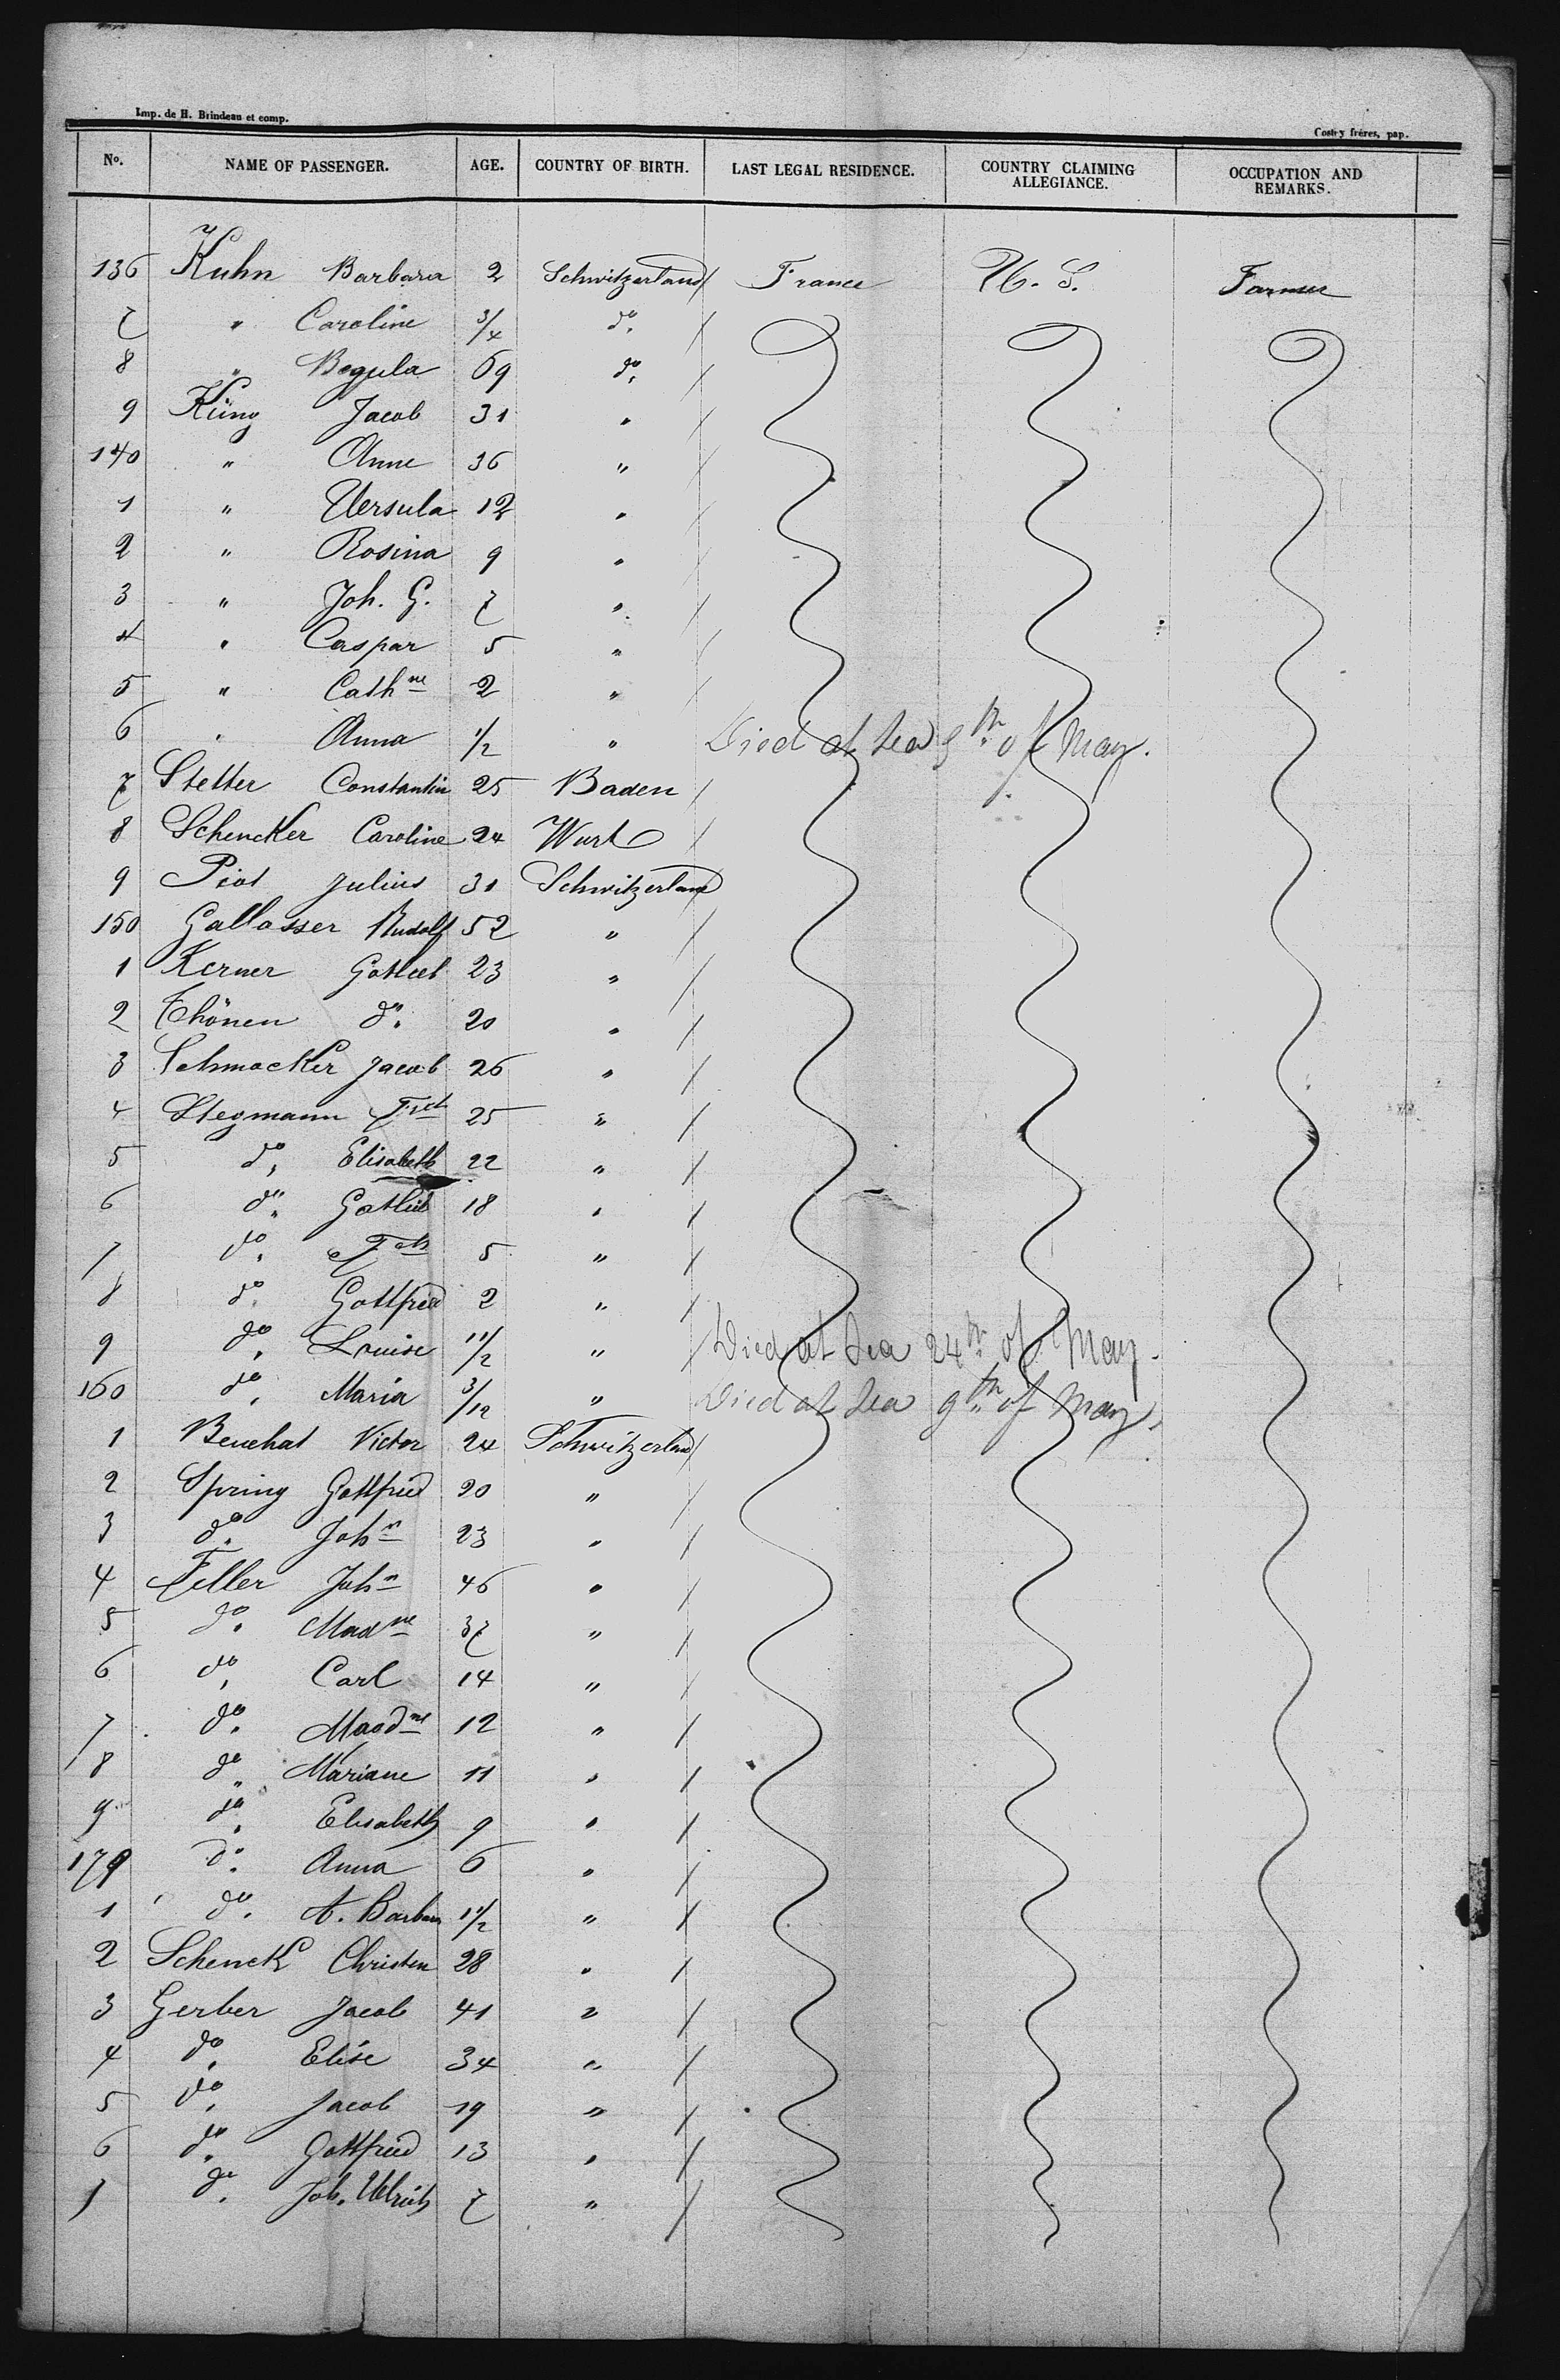 Imp. de H. Brindeau et comp.
Costey frères, pap.
No. NAME OF PASSENGER. AGE. COUNTRY OF BIRTH. LAST LEGAL RESIDENCE. COUNTRY CLAIMING ALLEGIANCE. OCCUPATION AND REMARKS.
136 Kuhn Barbara 2 Schwitzerland France U. S. Farmer
7 " Caroline 3/4 do.
8 " Regula 69 do.
9 Küng Jacob 31 "
140 " Anne 36 "
1 " Uersula 12 "
2 " Rosina 9 "
3 " Joh. G. 7 "
4 " Caspar 5 "
5 " Cathne 2 "
6 " Anna 1/2 " Died at Sea of May.
7 Stetter Constantin 25 Baden
8 Schencker Caroline 24 Wurt
9 Piot Julius 31 Schwitzerland
150 Gallasser Rudolf 52 "
1 Kerner Gotlieb 23 "
2 Thönen do. 20 "
3 Schmocker Jacob 26 "
4 Stegmann 25 "
5 do. Elisabeth 22 "
6 do. Gotlieb 18 "
7 do. 5 "
8 do. Gottfried 2 "
9 do. Louise 11/2 " Died at Sea 24th of May.
160 do. Maria 3/12 " Died at Sea 9th of May.
1 Beuchat Victor 24 Schwitzerland
2 Spring Gottfried 20 "
3 do. John 23 "
4 Feller John 46 "
5 do. Madne 37 "
6 do. Carl 14 "
7 do. Maadne 12 "
8 do. Mariane 11 "
9 do. Elisabeth 9 "
170 do. Anna 6 "
1 do. A. Barbara 11/2 "
2 Schenck Christen 28 "
3 Gerber Jacob 41 "
4 do. Elise 34 "
5 do. Jacob 19 "
6 do. Gottfried 13 "
7 do. Joh. Ulrich 7 "